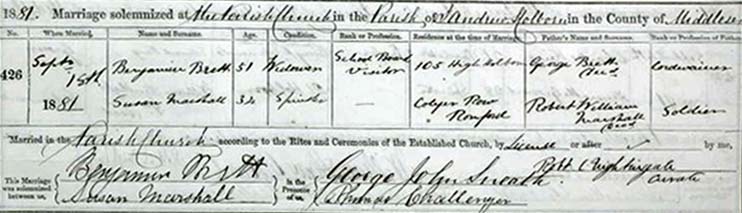 1881. Marriage solemnized at the Parish Church in the Parish of St Andrew Holborn in the County of Middlesex
No. When Married. Name and Surname. Age. Condition. Rank or Profession. Residence at the time of Marriage. Father's Name and Surname. Rank or Profession of Father.
426 Septr 15th 1881 Benjamin Brett 51 Widower School Board Visitor 105 High Holborn George Brett Decd Cordwainer
Susan Marshall 32 Spinster — Collier Row Romford Robert William Marshall Decd Soldier
Married in the Parish Church according to the Rites and Ceremonies of the Established Church, by License or after by me,
This Marriage was solemnized between us, Benjamin Brett Susan Marshall In the Presence of us, George John Sneath Challenger
Nightingale Curate